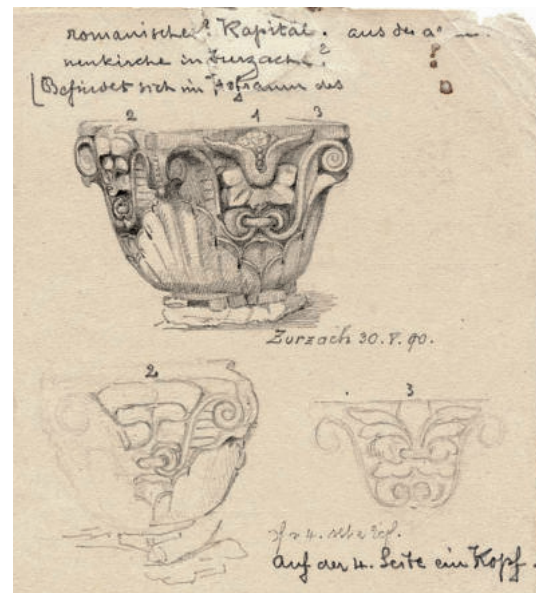 romanisches? Kapitäl. aus der
in Zurzach?
(Befindet sich im des
2 1 3
Zurzach 30.V.90.
2
3
auf der 4. Seite ein Kopf.